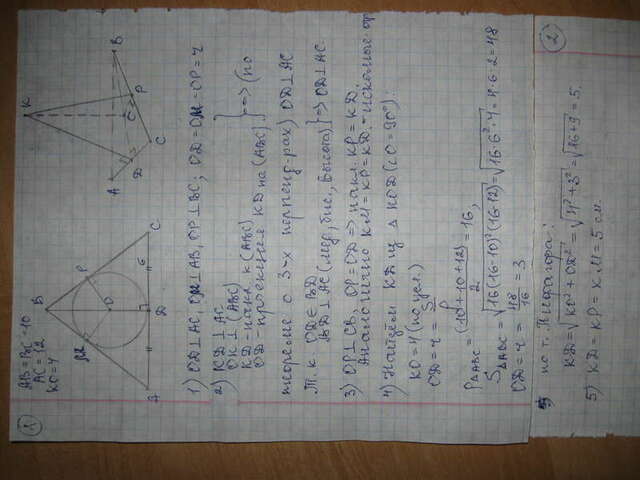 1
AB=BC=10
AC=12
KO=4
B
M
P
O
A
D
6
C
K
A
B
D
C
P
1) OD⊥AC, OM⊥AB, OP⊥BC; OD=OM=OP=r
2) KD⊥AC
OK⊥(ABC)
KD-накл к (ABC)
OD-проекция KD на (ABC) } => (по
теореме о 3-х перпенд-рах) OD⊥AC
Т.к. OD∈BD
BD⊥AC (мед, бис, высота) } => OD⊥AC.
3) OP⊥CB, OP=OD => накл. KP=KD.
Аналогично KM=KP=KD - искомые
4) Найдём KD из Δ KOD (∠O=90°):
KO=4 (по усл.)
OD=r=S/p
P△ABC=(10+10+12)/2=16,
S△ABC=√16(16-10)²(16-12)=√16·6²·4=4·6·2=48
OD=r=48/16=3
2
по т. Пифагора:
KD=√KO²+OD²=√4²+3²=√16+9=5.
5) KD=KP=KM=5 см.